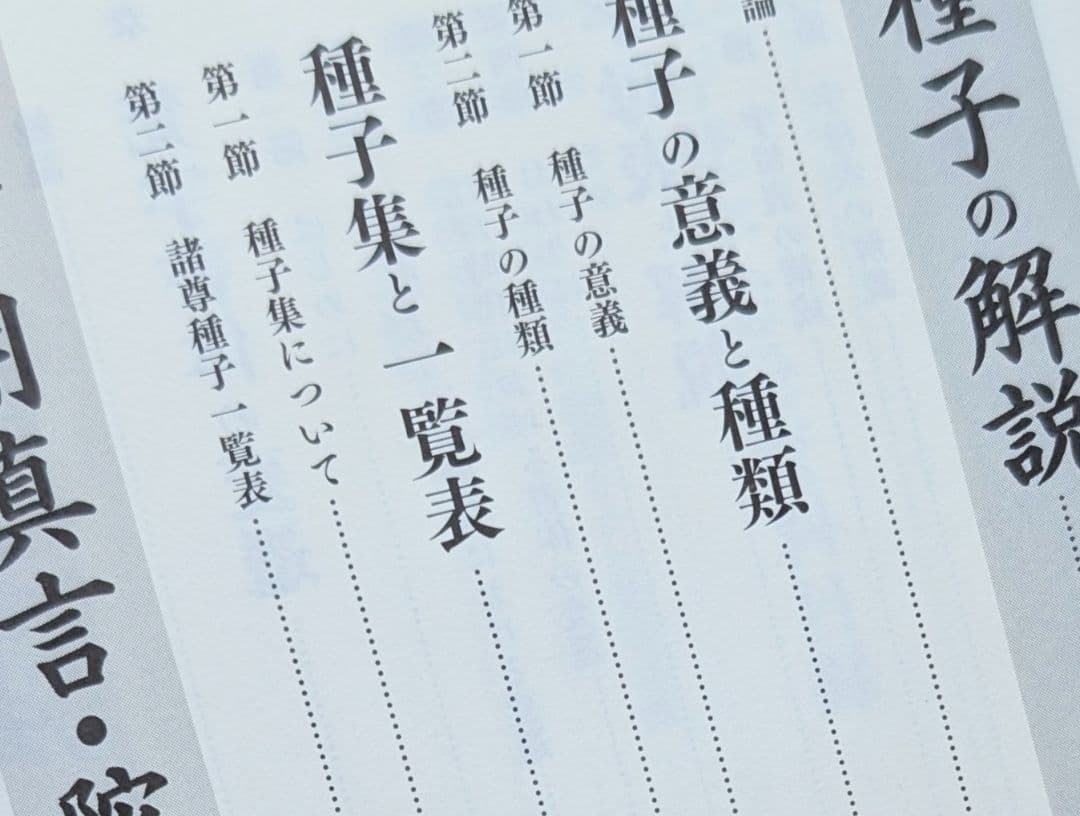 種子の解説
論
種子の意義と種類
第一節　種子の意義
第二節　種子の種類
種子集と一覧表
第一節　種子集について
第二節　諸尊種子一覧表
真言・陀